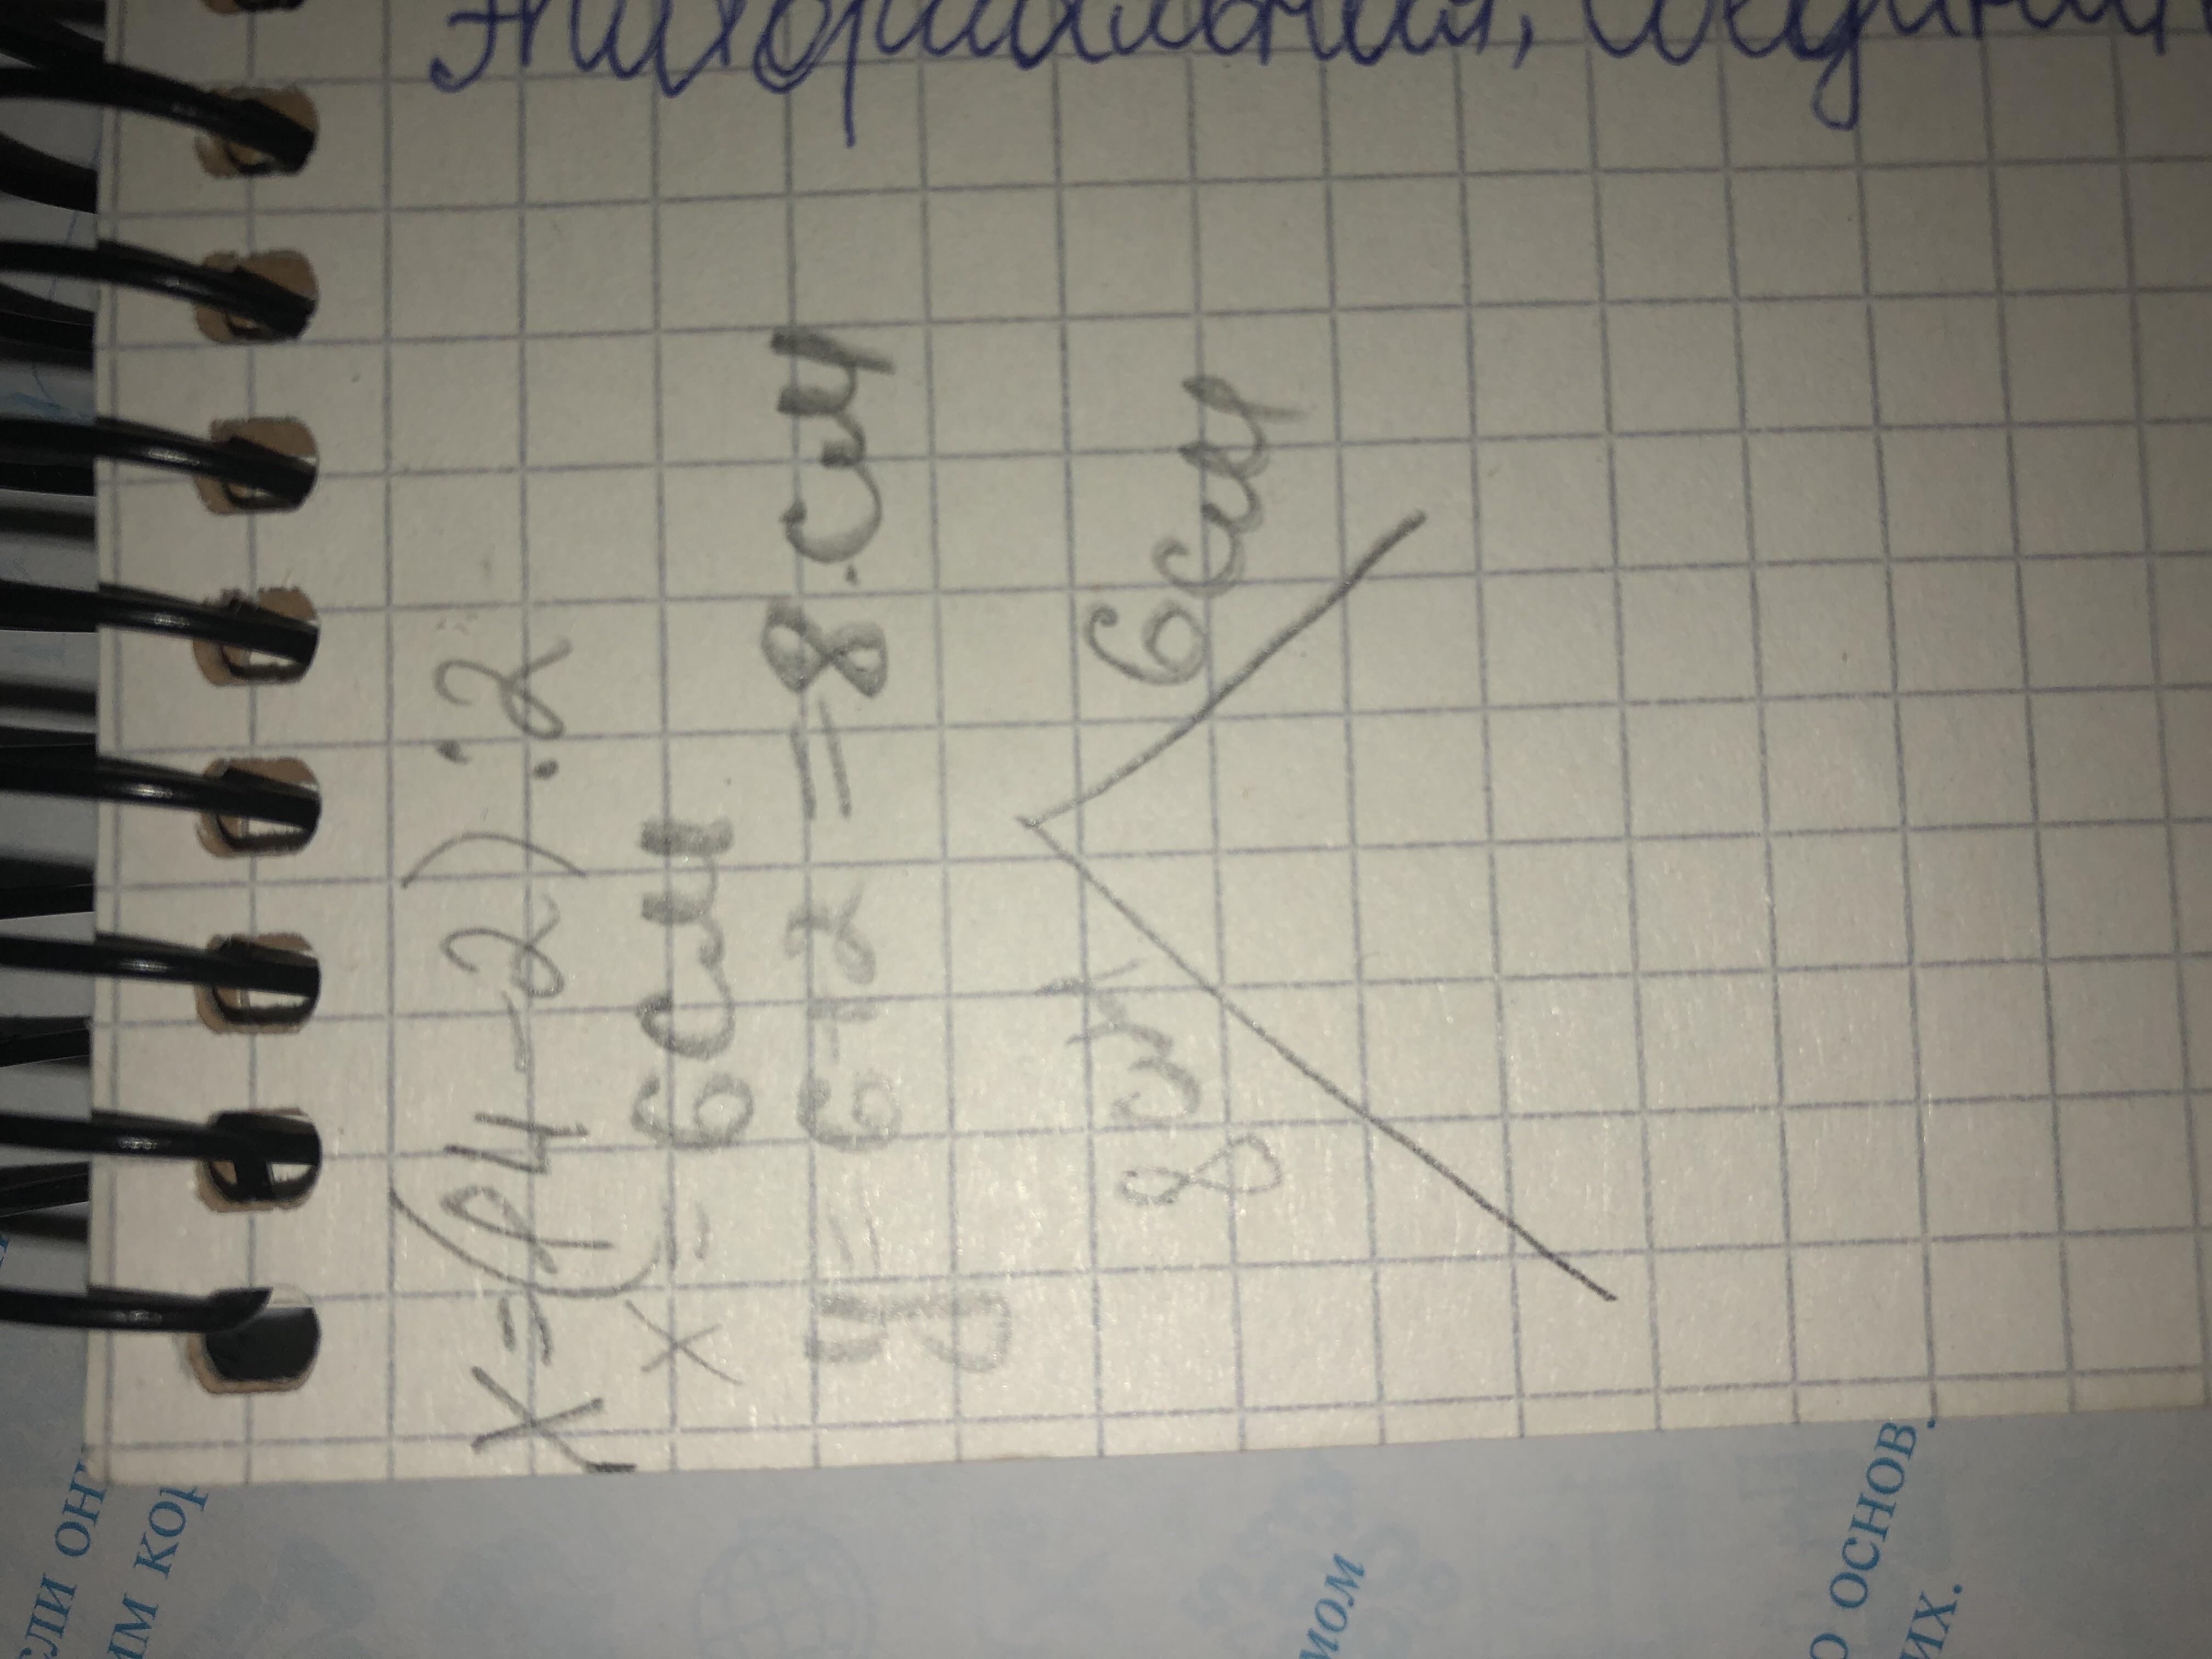 эпиориальная, соедини
X=(14-2):2
X = 6 см
y = 6+2 = 8.см
8 см 6 см
если он
им кор
мом
о основ.
их.